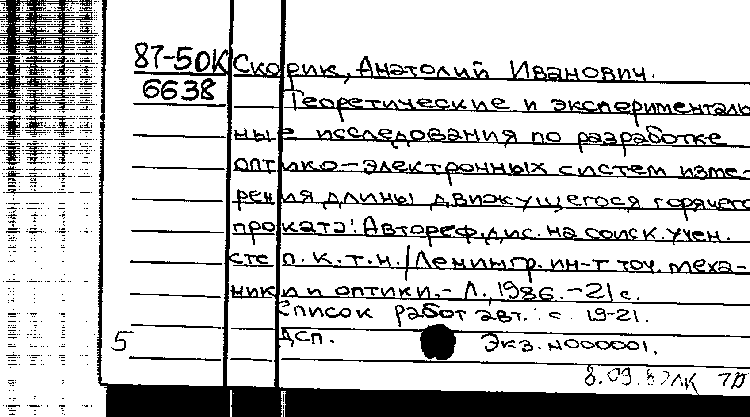 87-50К Скорик, Анатолий Иванович.
6638 Теоретические и эксперименталь
ные исследования по разработке
оптико-электронных систем изме-
рения длины движущегося горячего
проката: Автореф. дис. на соиск. учен.
степ. к.т.н. / Ленингр. ин-т точ. меха-
ники и оптики. - Л., 1986. - 21 с.
Список работ авт.: с. 19-21.
5 ДСП. Экз. N000001.